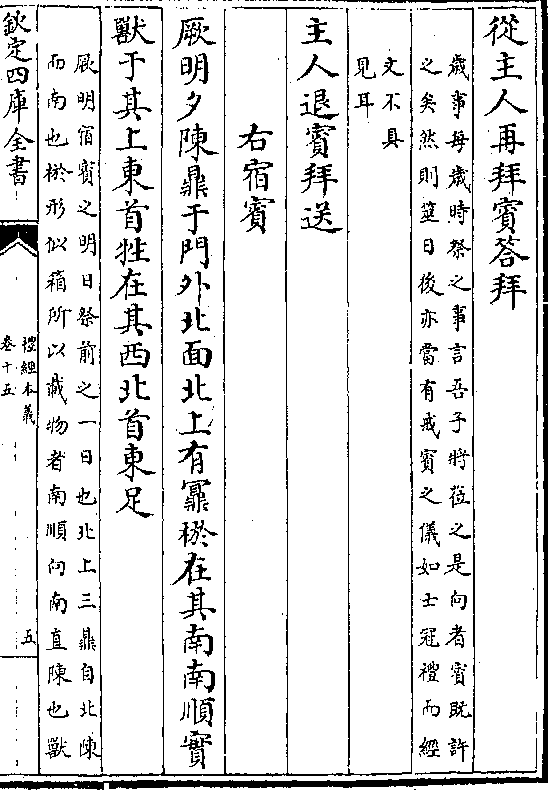 從主人再拜賓答拜
歲事每歲時祭之事言吾子將蒞之是向者賓既許
之矣然則筮日後亦當有戒賓之儀如士冠禮而經
文不具
見耳
主人退賓拜送
右宿賓
厥明夕陳鼎于門外北面北上有鼏棜在其南南順實
獸于其上東首牲在其西北首東足
厥明宿賓之明日祭前之一日也北上三鼎自北陳
而南也棜形似箱所以藏物者南順向南直陳也獸
欽定四庫全書
禮經本義
卷十五
五